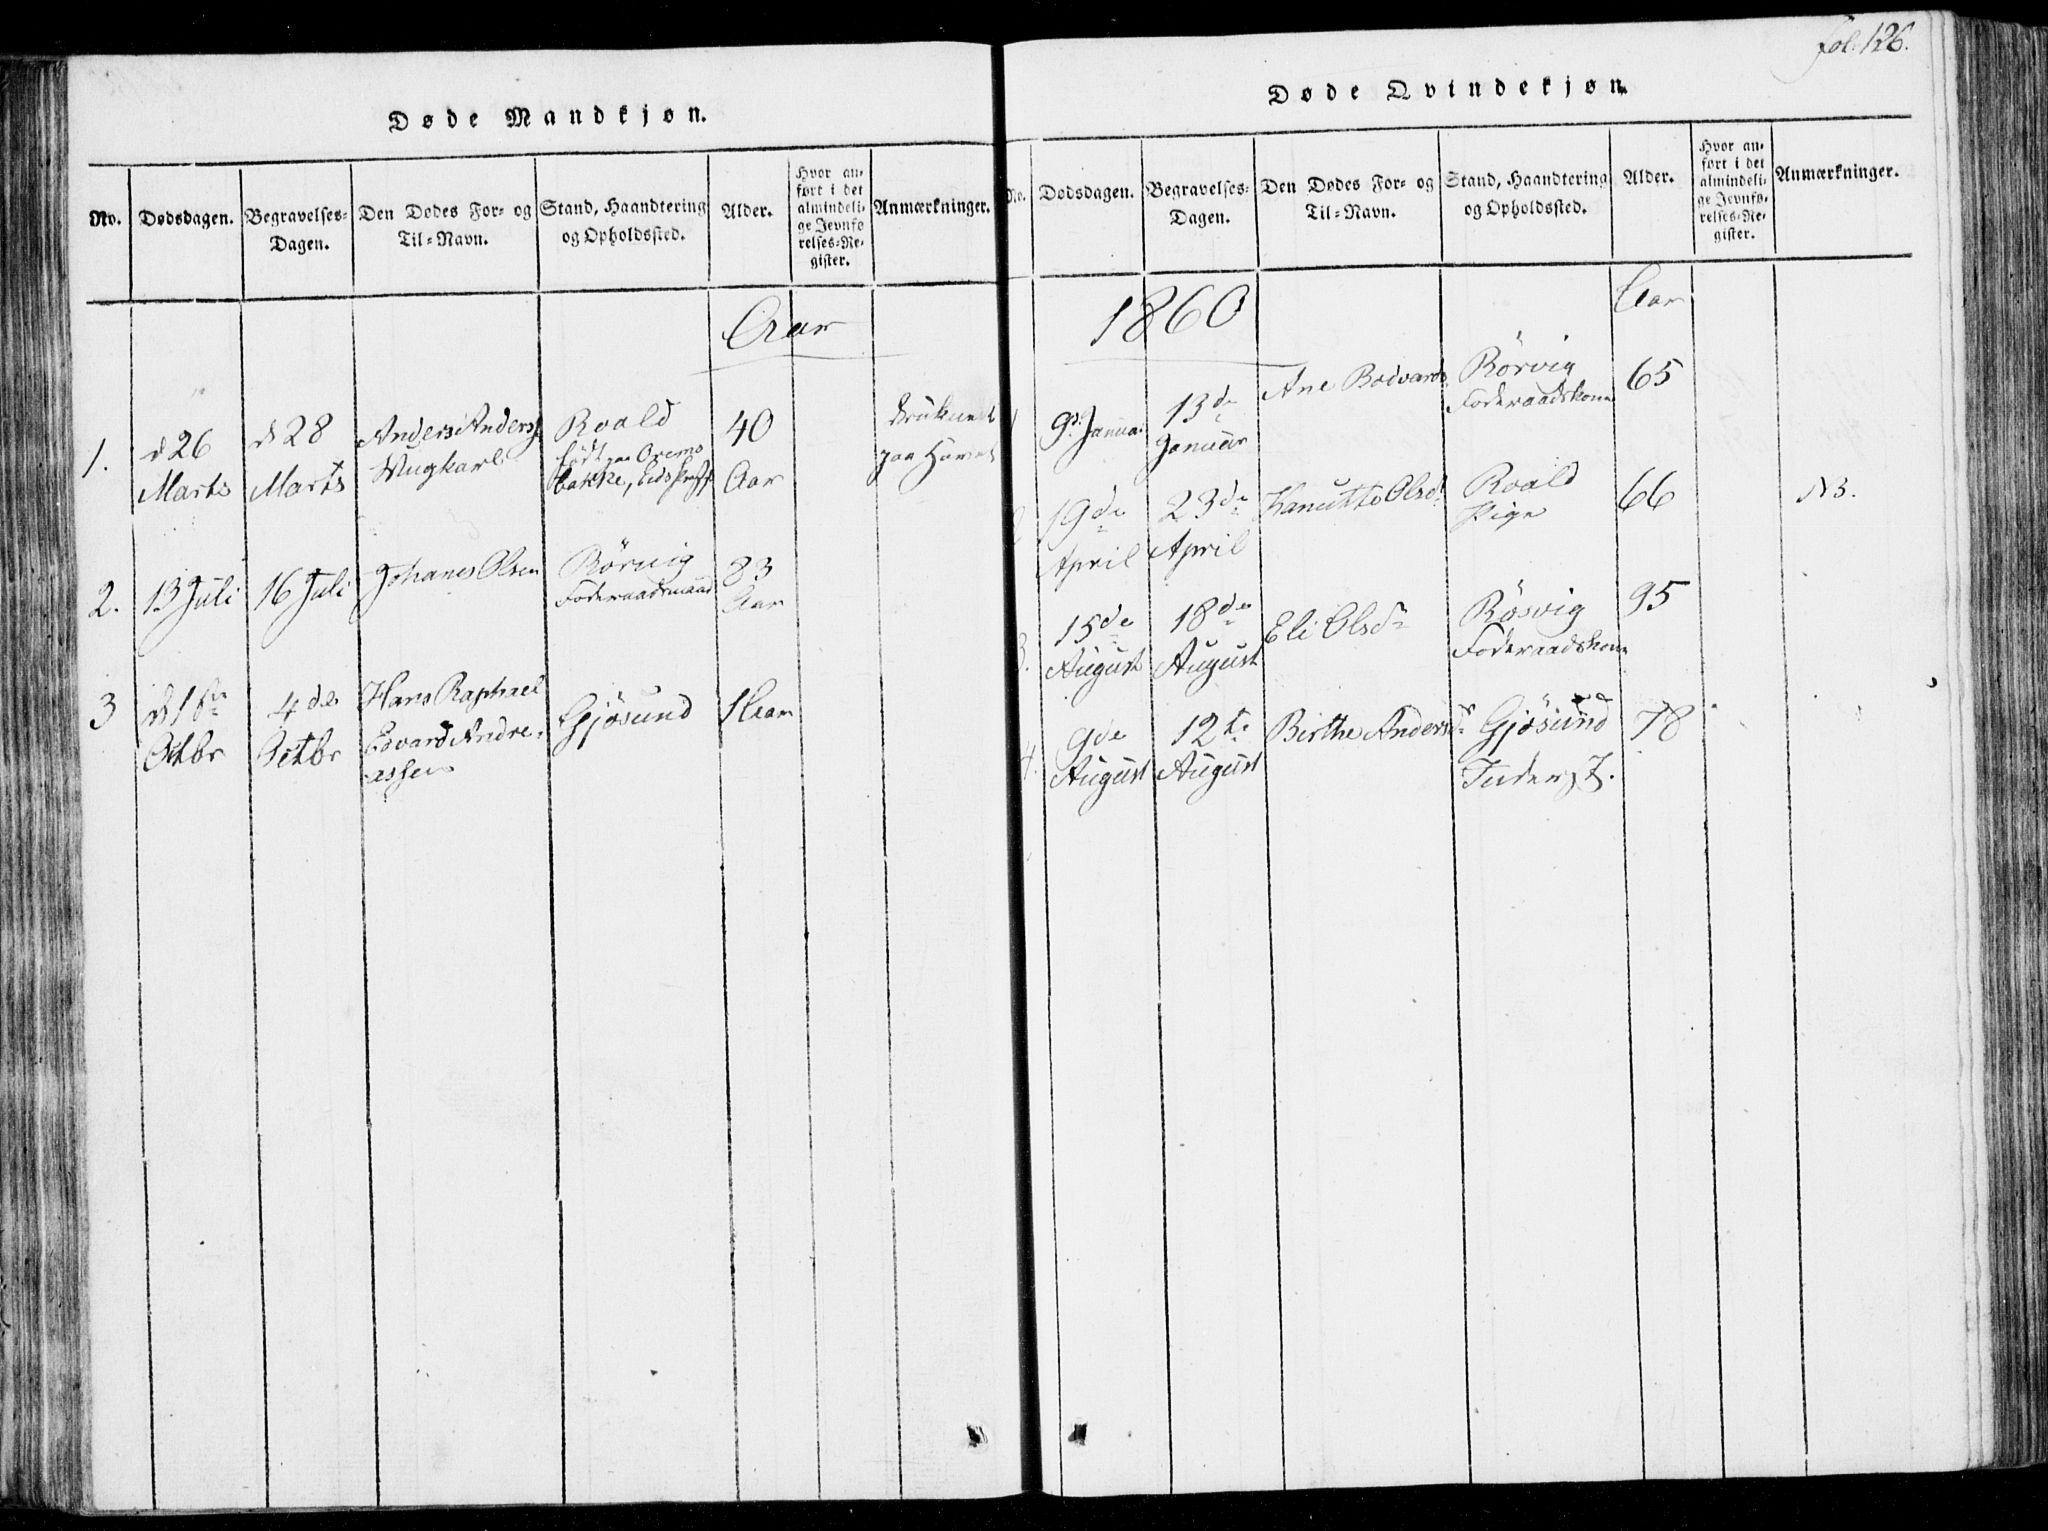 Døde Mandkjøn.
No.
Dødsdagen.
Begravelses-
Dagen.
Den Dødes For- og
Til-Navn.
Stand, Haandtering
og Opholdssted.
Alder.
Hvor an-
ført i det
almindeli-
ge Jevnfø
relses-Re-
gister.
Anmærkninger.
Aar
1.
d 26
Marts
d 28
Marts
Anders Anders
Ungkarl
Roald
født
bakke,
40
Aar
druknet
paa Havet
2.
13 Juli
16 Juli
Johanes Olsen
Rörvig
Föderaadsmand
83
Aar
3
d 1ste
Octbr
4de
Octbr
Hans Raphael
Edvard Andre-
assen
Gjösund
1 Aar
fol. 126.
Døde Qvindekjøn.
No.
Dødsdagen.
Begravelses-
Dagen.
Den Dødes For- og
Til-Navn.
Stand, Haandtering
og Opholdssted.
Alder.
Hvor an-
ført i det
almindeli-
ge Jevnfø-
relses-Re-
gister.
Anmærkninger.
1860
Aar
1
9d Januar
13de
Januar
Ane Bodvards
Rörvig
Foderaadskone
65
2
19de
April
23de
April
Kanutte Olsd.
Roald
Pige
66
NB.
3.
15de
August
18de
August
Eli Olsdr
Rösvig
Foderaadskone
95
4.
9de
August
12te
August
Birthe Andersdr
Gjösund
78